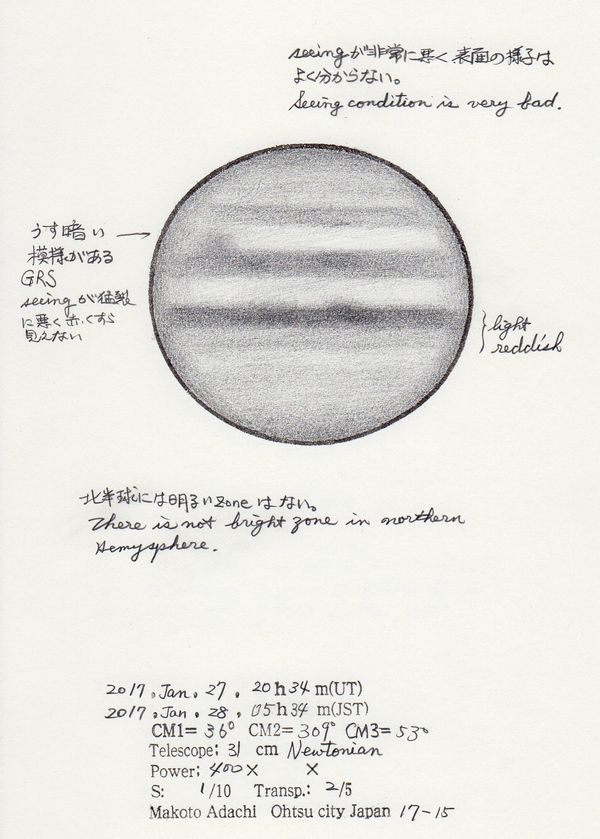 seeingが非常に悪く表面の様子は
よく分からない。
Seeing condition is very bad.
うす暗い →
模様がある
GRS
seeingが猛烈
に悪く赤くすら
見えない
light
reddish
北半球には明るいzoneはない。
There is not bright zone in northern
hemysphere.
2017. Jan. 27. 20h34m(UT)
2017. Jan. 28. 05h34m(JST)
CM1= 36° CM2= 309° CM3= 53°
Telescope; 31 cm Newtonian
Power; 400× ×
S: 1/10 Transp.: 2/5
Makoto Adachi Ohtsu city Japan 17-15